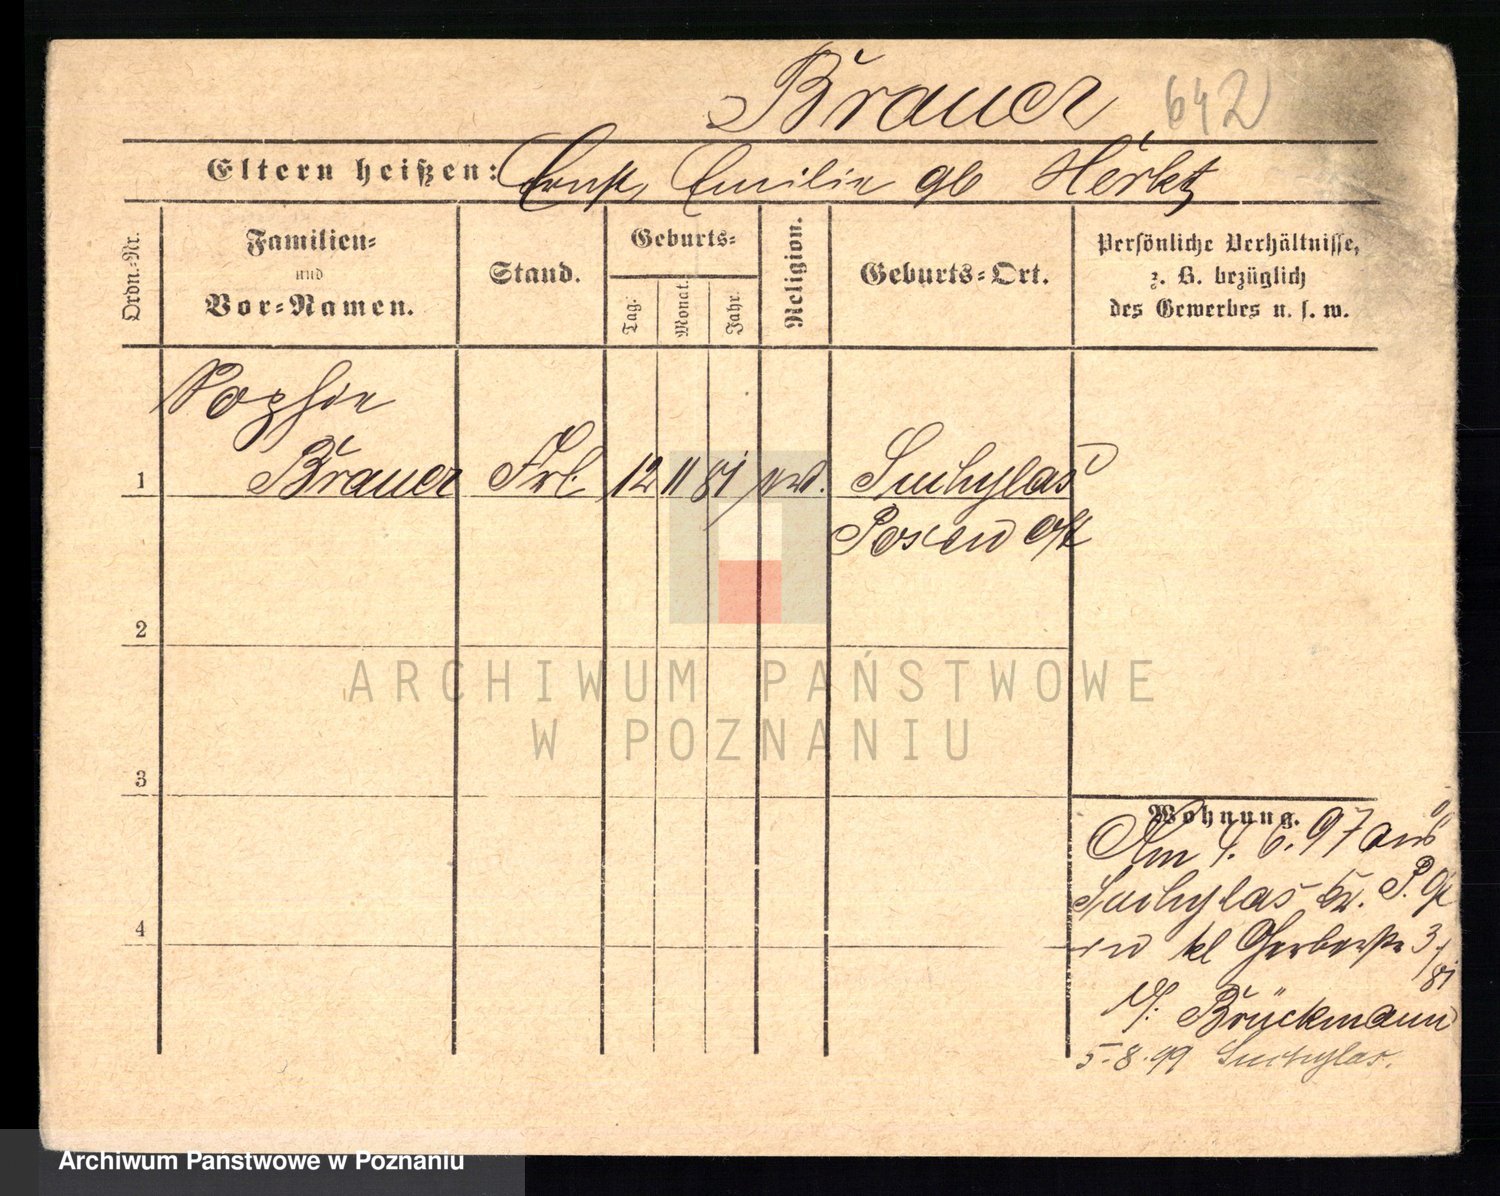 Brauer 642
Eltern heißen: Ernst, Emilie gb
Ordn.-Nr.
Familien-
und
Vor-Namen.
Stand.
Geburts-
Tag.
Monat.
Jahr.
Religion.
Geburts-Ort.
Persönliche Verhältnisse,
z. B. bezüglich
des Gewerbes u. s. w.
Sophie
1 Brauer Frl. 12 11 81 ev. Suchylas
Posen Ost
2
3
4
Wohnung.
Am 4. 6. 97 aus
Suchylas Kr. P. Ost
in kl Gerberstr 3/
81
Brückmann
5.8.99 Suchylas.
ARCHIWUM PAŃSTWOWE
W POZNANIU
Archiwum Państwowe w Poznaniu